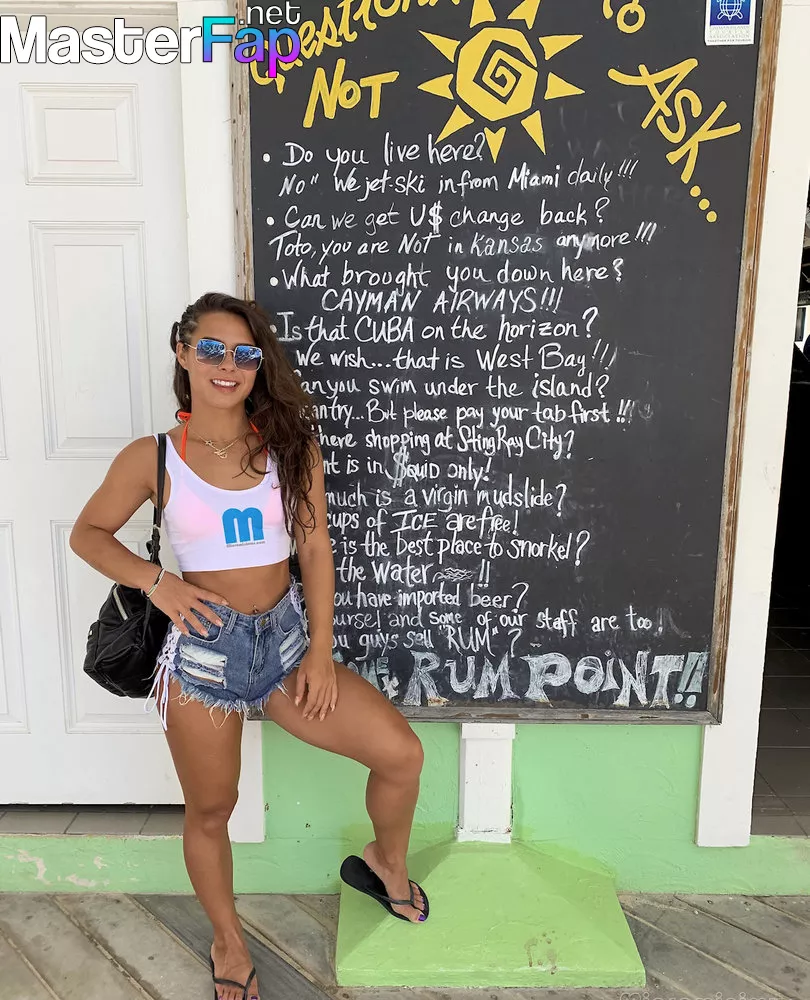 MasterFap.net
Questions
Not
to
ASK...
• Do you live here?
No" We jet-ski in from Miami daily!!!
• Can we get U$ change back?
Toto, you are NOT in Kansas anymore!!!
• What brought you down here?
CAYMAN AIRWAYS!!!
• Is that CUBA on the horizon?
We wish...that is West Bay!!!
an you swim under the island?
antry... But please pay your tab first!!
here shopping at StingRay City?
t is in $quid only!
much is a virgin mudslide?
cups of ICE are free!
e is the best place to snorkel?
the Water !!
ou have imported beer?
ourse! and some of our staff are too!
ou guys sell "RUM"?
RUM POINT!!
m